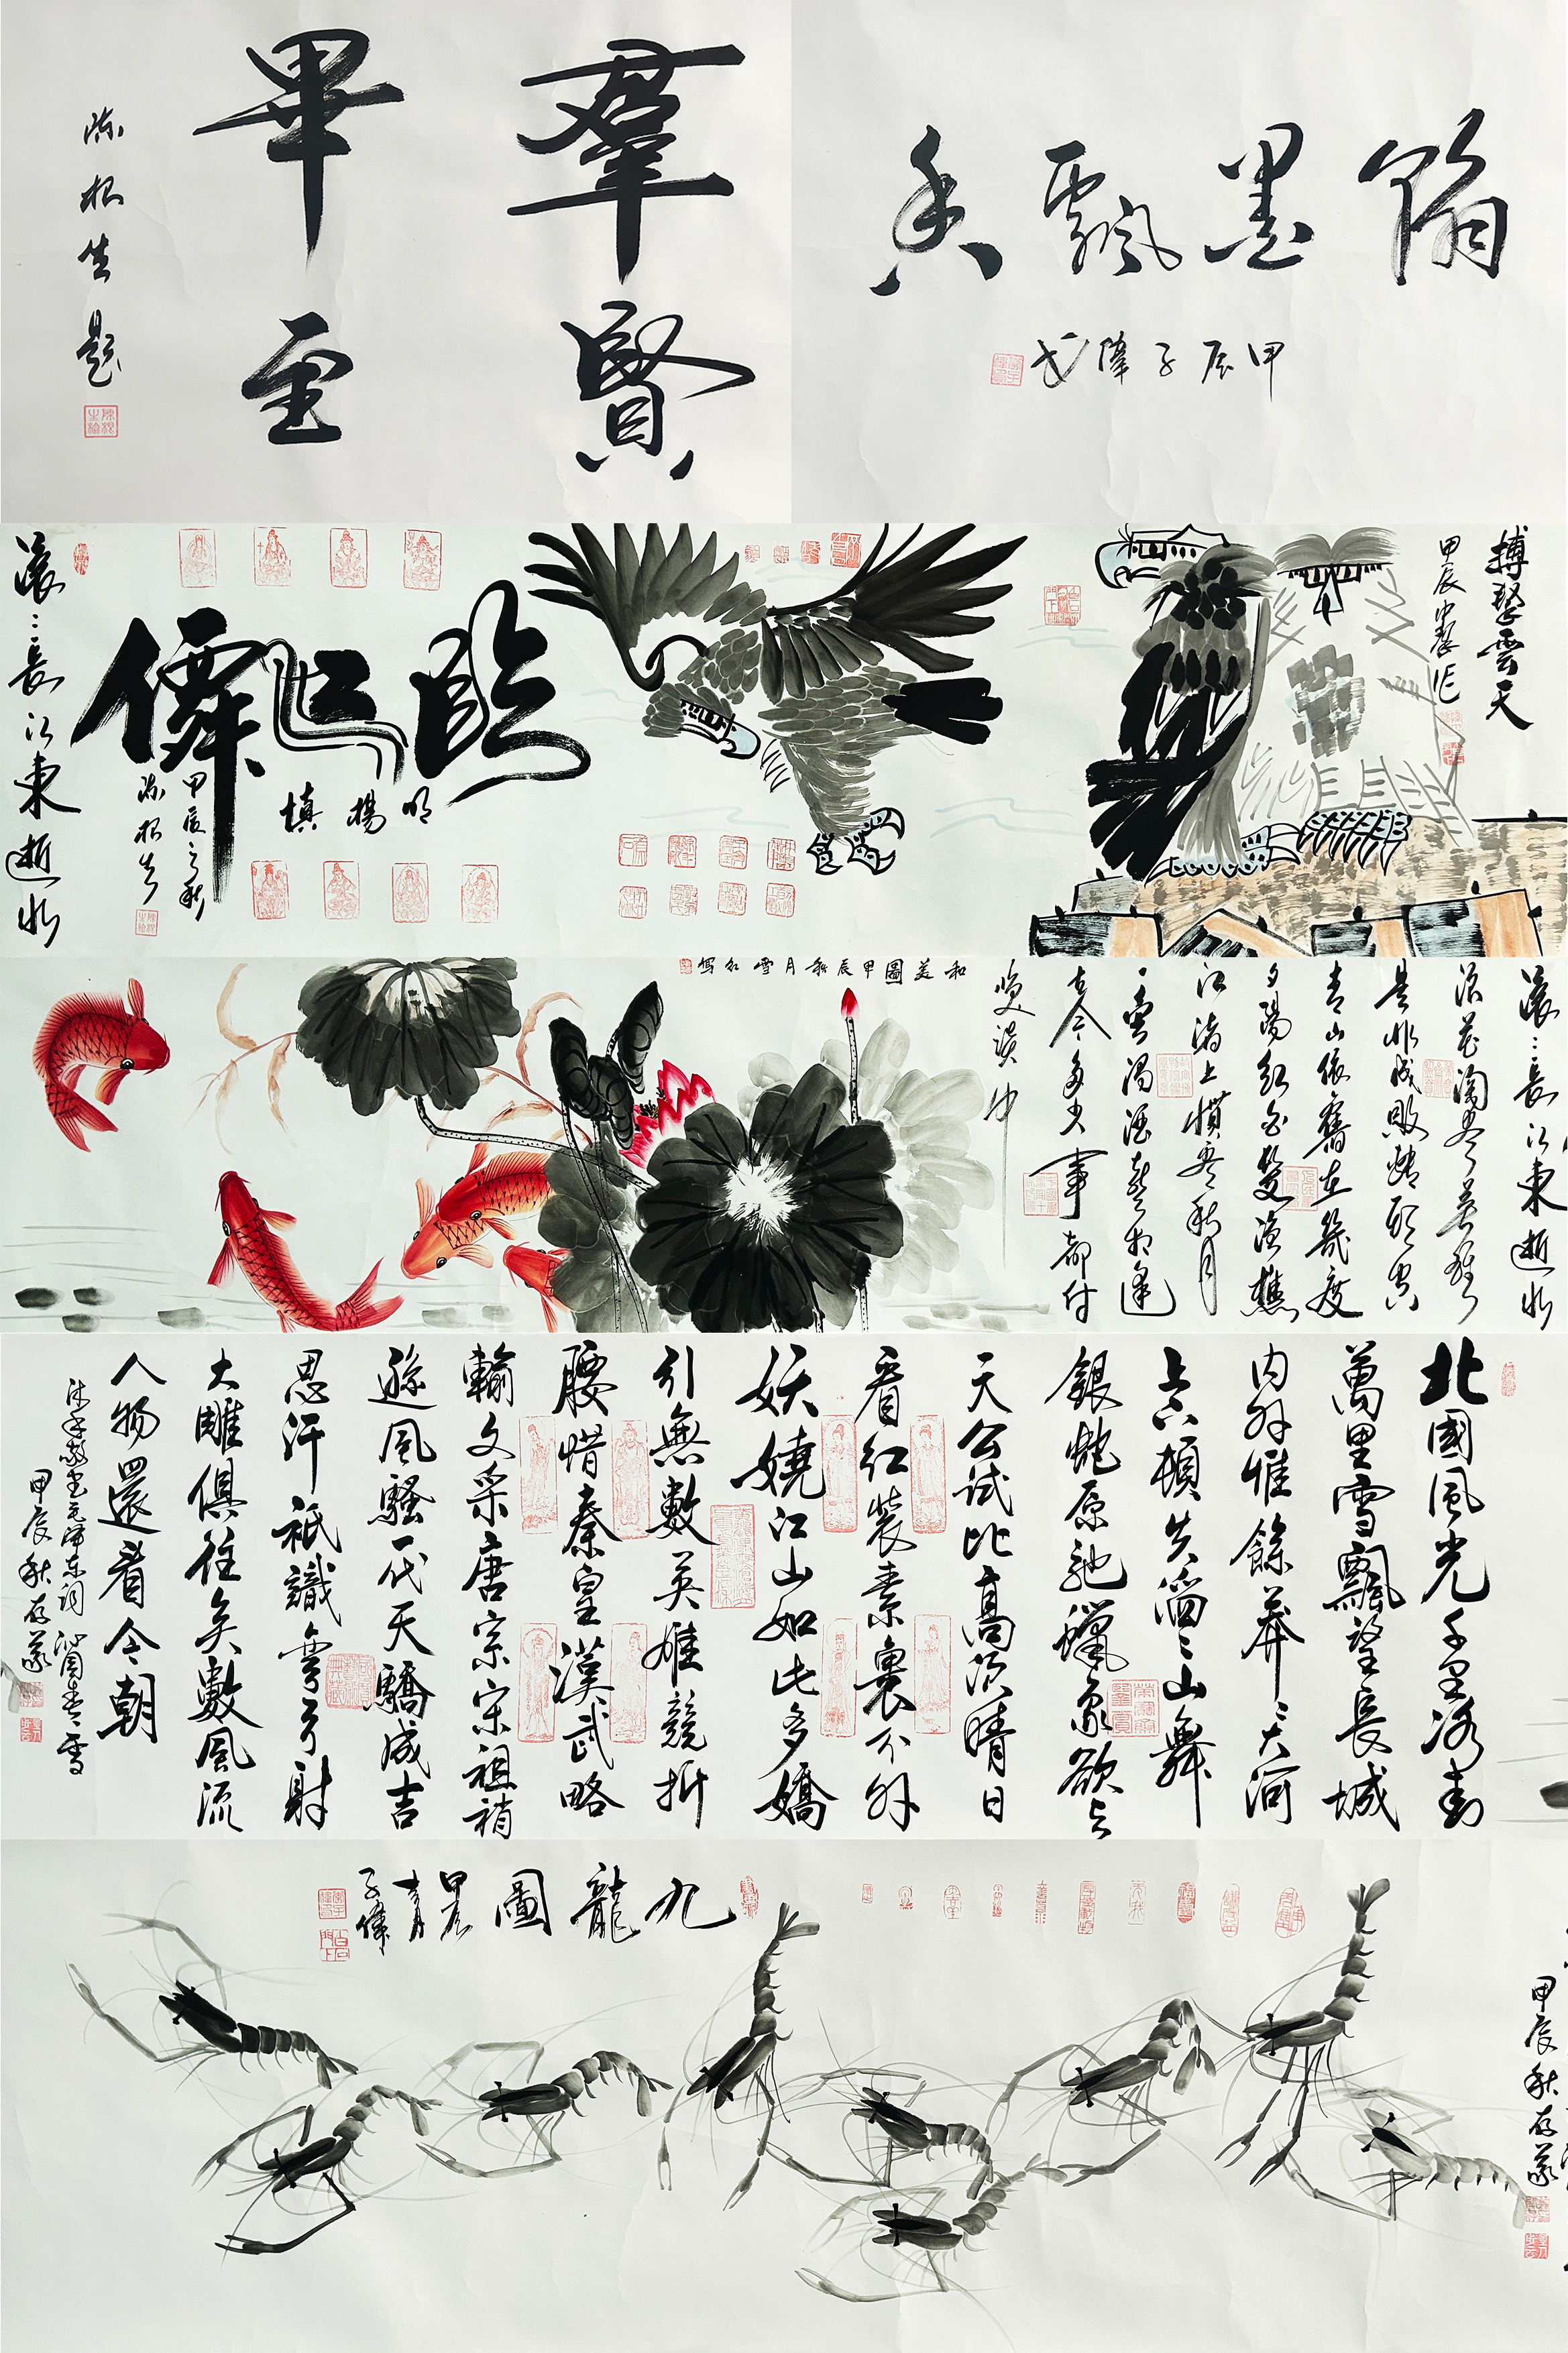 羣賢
畢至
陈根生題
墨飘香
甲辰子偉书
搏擊雲天
臨江僊
明楊慎
甲辰之秋
陈根生
滚：長江東逝水
滚：長江東逝水
浪花淘尽英雄
是非成敗转头空
青山依舊在幾度
夕陽红白髮渔樵
江渚上惯看秋月
一壶濁酒喜相逢
古今多少事都付
笑談中
和美圖甲辰秋月雪红寫
北國風光千里冰封
萬里雪飄望長城
内外惟餘莽〻大河
上下頓失滔〻山舞
銀蛇原馳蠟象欲与
天公試比高須晴日
看红装素裹分外
妖嬈江山如此多嬌
引無數英雄競折
腰惜秦皇漢武略
輸文采唐宗宋祖稍
遜風騷一代天驕成吉
思汗祇識彎弓射
大雕俱往矣數風流
人物還看今朝
毛泽东詞沁园春雪
甲辰秋
九龍圖
甲辰
子偉
甲辰秋